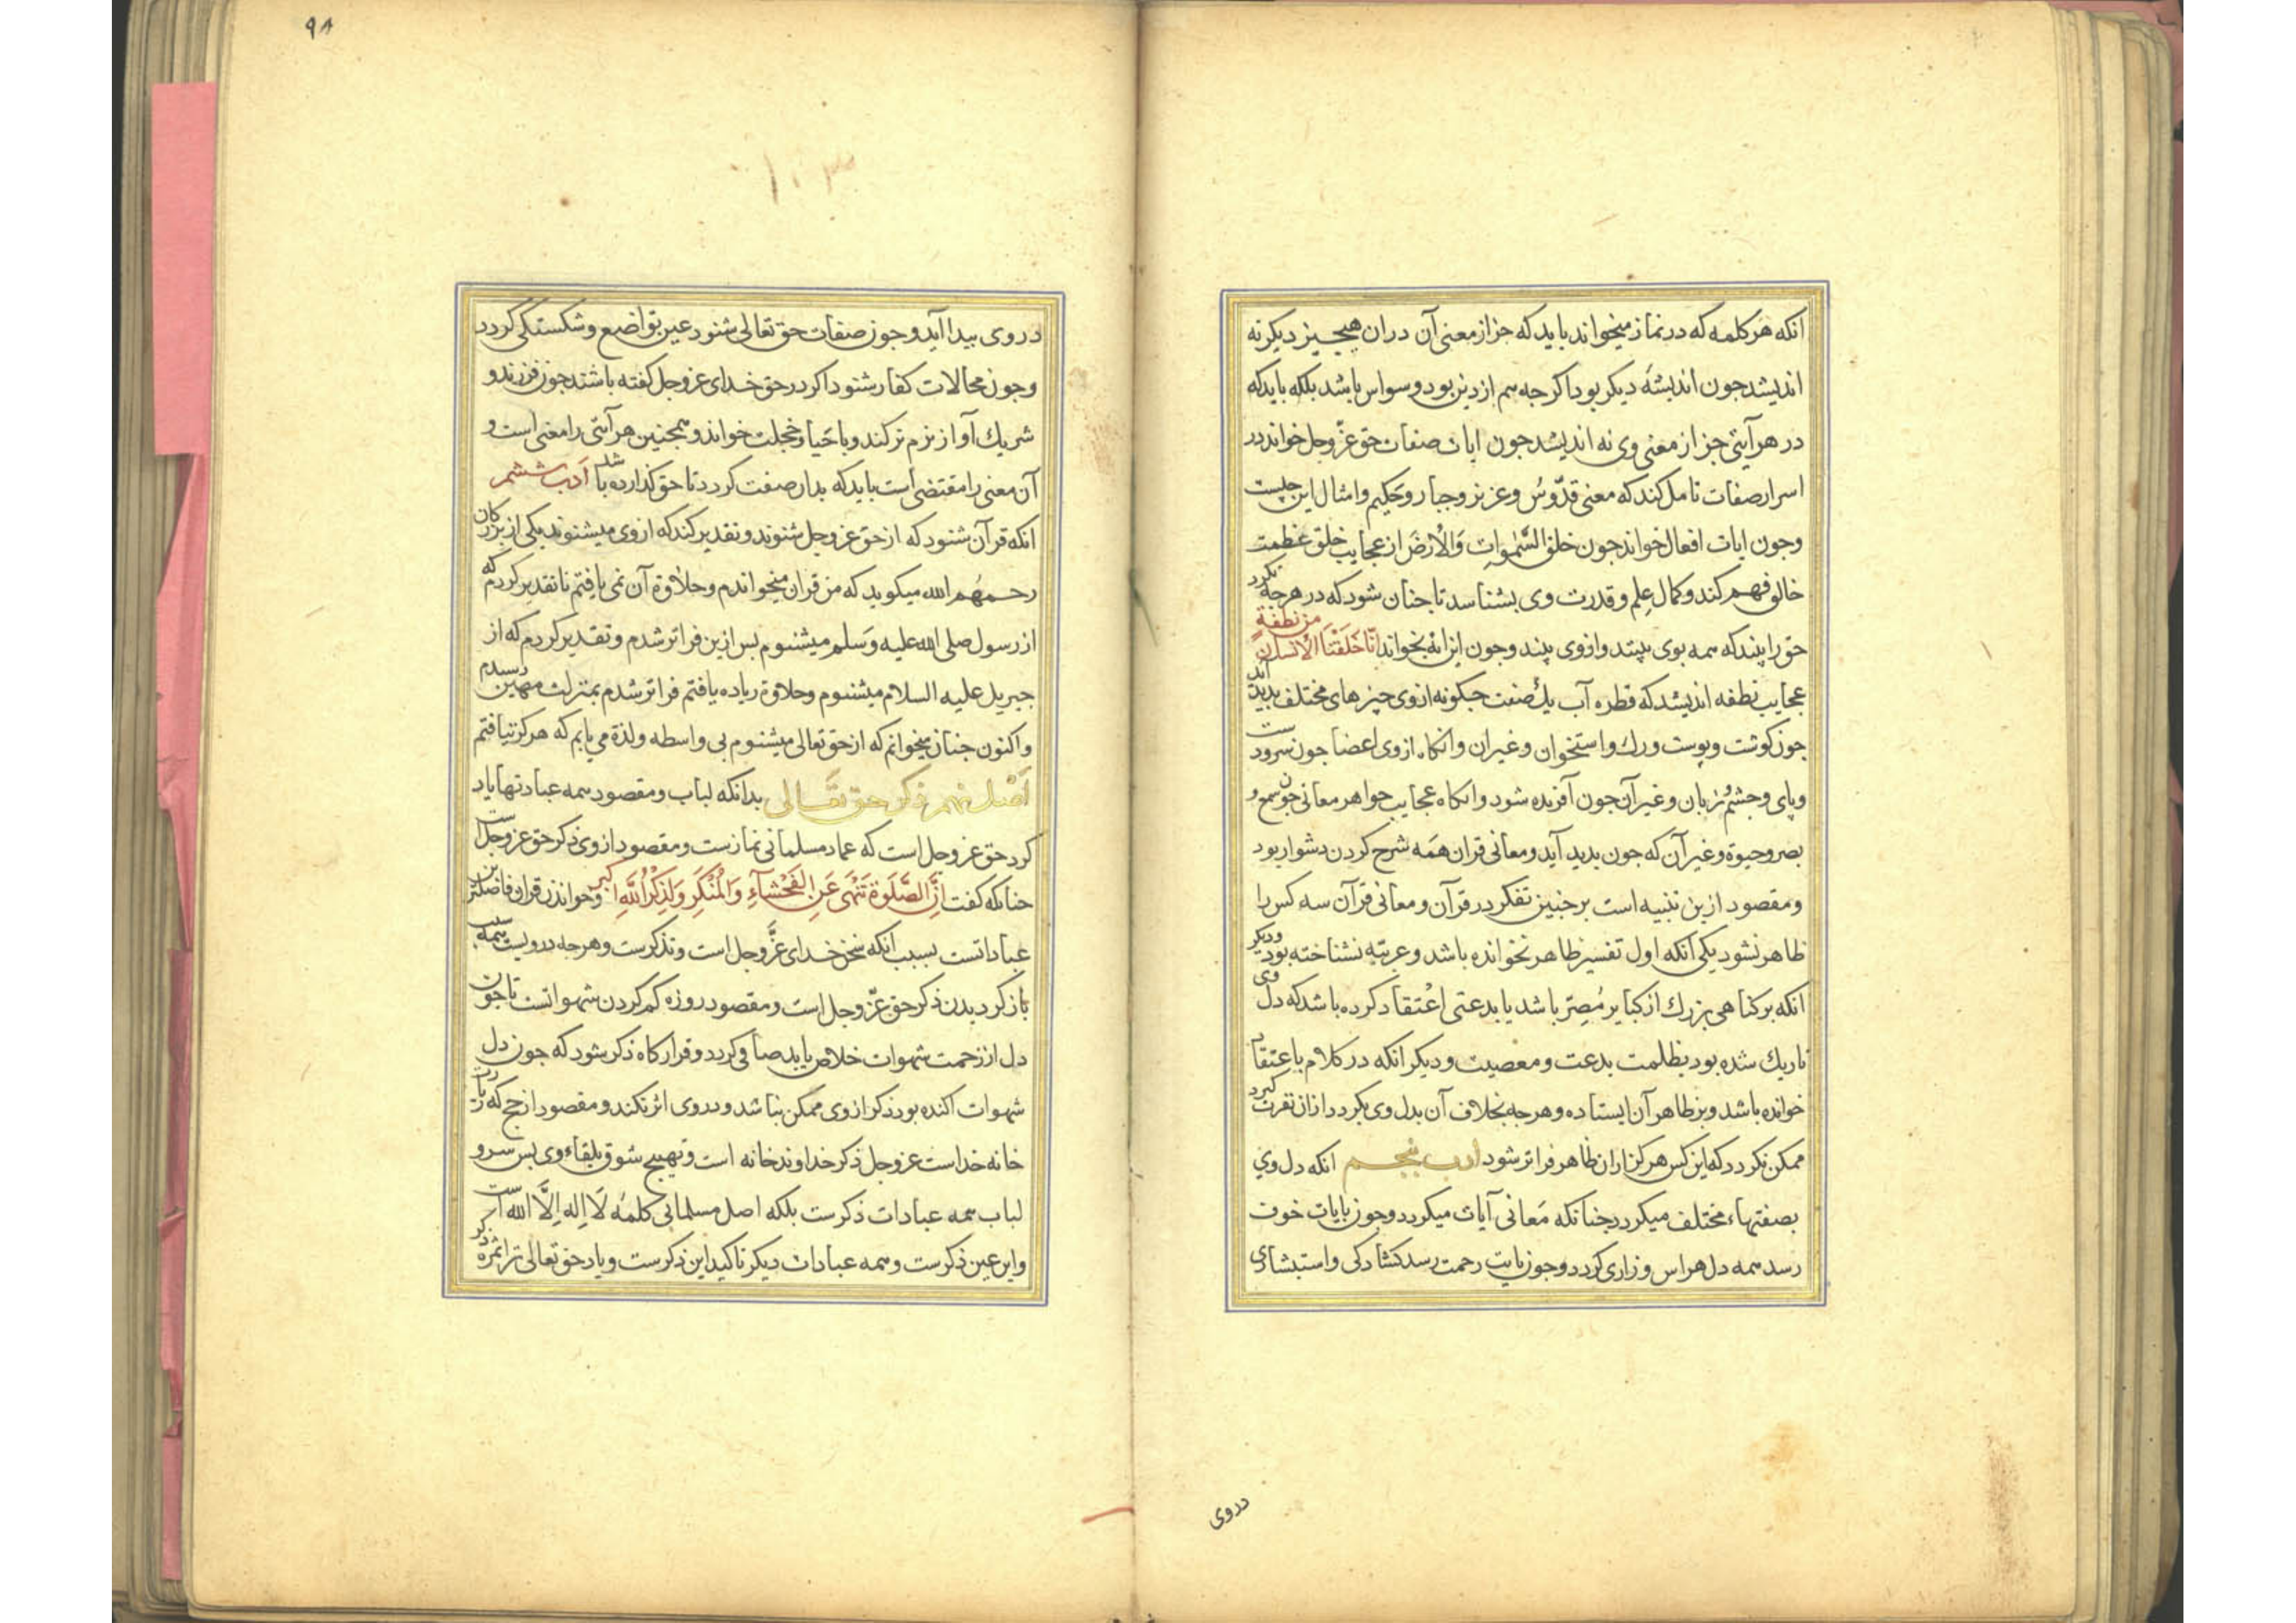 انکه هر کلمه که در نماز میخواند باید که جز از معنی آن دران هیچ چیز دیکر نه
اندیشد جون اندیشهٔ دیکر بود اکر جه هم از دین بود وسواس باشد بلکه باید که
در هر آیتی جز از معنی وی نه اندیشد جون ایات صفات حق عزّ وجل خواند در
اسرار صفات تامل کند که معنی قدّوسُ وعزیز وجبار وحَکیم وامثال این چیست
وجون ایات افعال خواند جون خلق السَّمٰوات وَالْاَرْضَ از عجایب خلق عظمت
خالق فهم کند وکمال عِلم وقدرت وی بشناسد تا جنان شود که در هرجه نکرد
حق را بیند که همه بوی بیند وازوی بیند وجون این ایه بخواند اِنَّا خَلَقْنَا الْاِنْسَانَ من نطفة
عجایب نطفه اندیشد که قطره آب یک صفت جکونه ازوی جیزهای مختلف بدید آید
جون کوشت وپوست ورک واستخوان وغیران وانکاه ازوی اعضا جون سرودست
وپای وجشم وزبان وغیرآن جون آفریده شود وانکاه عجایب جواهر معانی جون سمع و
بصر وحیوة وغیرآن که جون بدید آید ومعانی قران همَه شرح کردن دشوار بود
ومقصود ازین تنبیه است بر جنین تفکر در قرآن ومعانی قرآن سه کس را
ظاهر نشود یکی آنکه اول تفسیر ظاهر نخوانده باشد وعربیّه نشناخته بود ودیکر
انکه بر کناهی بزرک از کبایر مُصِرّ باشد یا بدعتی اعْتقاد کرده باشد که دل وی
تاریک شده بود بظلمت بدعت ومعصیت ودیکر انکه در کلام باعتقاد
خوانده باشد وبر ظاهر آن ایستاده وهرجه بخلاف آن بدل وی بکردد ازان نفرت کیرد
ممکن نکردد که این کس هرکز ازان ظاهر فراتر شود ادب پنجم انکه دل وی
بصفتهاء مختلف میکردد جنانکه مَعانی آیات میکردد وجون بایات خوف
رسد همه دل هراس وزاری کردد وجون بایت رحمت رسد کشادکی واستبشاری
دروی
۹۸
۱۰۳
دروی بیدا آید وجون صفات حق تعالی شنود عین تواضع وشکستکی کردد
وجون محالات کفار شنود اکر در حق خدای عز وجل کفته باشند جون فرزند و
شریک آواز نرم تر کند وبا حَیا وخجلت خواند وهمجنین هر آیتی را معنی است و
آن معنی را مقتضی است باید که بدان صفت کردد تا حق کذارده باشد اَدب ششم
انکه قرآن شنود که از حق عز وجل شنوند وتقدیر کند که ازوی میشنوند یکی از بزرکان
رحمهُم الله میکوید که من قران میخواندم وحلاوة آن نمی یافتم تا تقدیر کردم که
از رسول صلی الله علیه وَسَلم میشنوم بس ازین فراتر شدم وتقدیر کردم که از
جبریل علیه السلام میشنوم وحلاوة زیاده یافتم فراتر شدم بمنزلت مهین رسیدم
واکنون جنان میخوانم که از حق تعالی میشنوم بی واسطه ولذة می یابم که هرکز نیافتم
اَصْل نهم ذکر حق تعَالی بدانکه لباب ومقصود همه عبادتها یاد
کرد حق عز وجل است که عماد مسلمانی نمازست ومقصود ازوی ذکر حق عز وجل است
جنانکه کفت اِنَّ الصَّلَوةَ تَنْهَى عَنِ الفَحْشَآءِ وَالْمُنْكَرِ وَلَذِكْرُ اللَّهِ اکبر وخواندن قران فاضلترین
عباداتست بسبب انکه سخن خدای عزَّ وجل است ومذکرست وهرجه درویست همه سبب
باز کردیدن ذکر حق عزّ وجل است ومقصود روزه کم کردن شهواتست تا جون
دل از زحمت شهوات خلاص یابد صافی کردد وقرارکاه ذکر شود که جون دل
شهوات اکنده بود ذکر ازوی ممکن نباشد ودروی اثر نکند ومقصود از حج که زیارت
خانه خداست عز وجل ذکر خداوند خانه است وتهییج شوق بلقاء وی بس سر و
لباب همه عبادات ذکرست بلکه اصل مسلمانی کلمهٔ لَا اِله اِلَّا الله است
واین عین ذکرست وهمه عبادات دیکر تاکید این ذکرست ویاد حق تعالی ترا ثمره ذکر